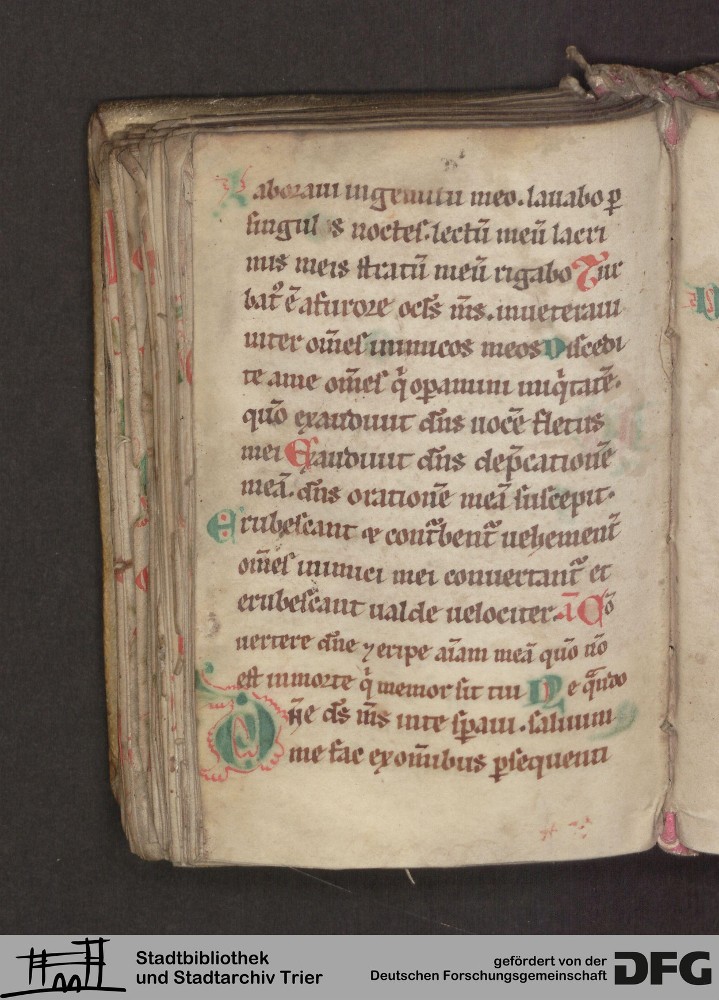 Laboraui in gemitu meo. lauabo ꝑ
singulas noctes. lectū meū lacri
mis meis stratū meū rigabo Tur
batꝰ ē a furore ocl̄s m̄s. inueteraui
inter om̄es inimicos meos Discedi
te a me om̄es q̄ operamini iniq̄tatē.
quō exaudiuit dn̄s uocē fletus
mei Exaudiuit dn̄s dep̄cationē
meā. dn̄s orationē meā suscepit.
Erubescant ⁊ cont᷑bent᷑ uehement᷑
om̄es inimici mei conuertant᷑ et
erubescant ualde uelociter. ā Cō
uertere dn̄e ⁊ eripe aīam meā quō nō
est in morte q̄ memor sit tui Ne q̄ndo
Dn̄e ds̄ m̄s in te sꝑaui. saluum
me fac ex om̄ibus ꝑsequenti
Stadtbibliothek
und Stadtarchiv Trier
gefördert von der
Deutschen Forschungsgemeinschaft
DFG